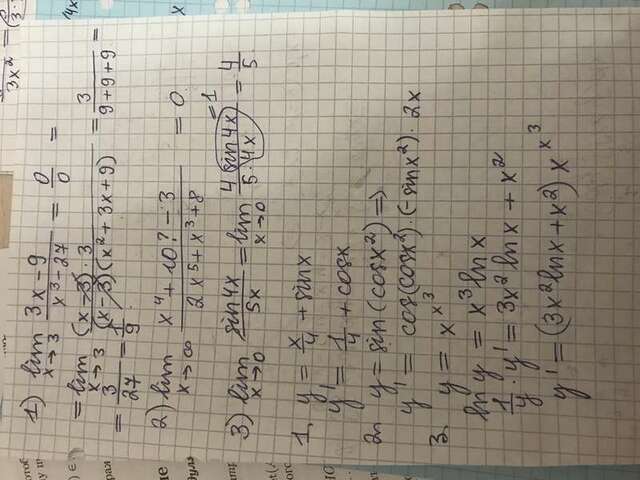 3x²
1) lim x→3 (3x-9)/(x³-27) = 0/0 =
= lim x→3 ((x-3)·3)/((x-3)(x²+3x+9)) = 3/(9+9+9) =
= 3/27 = 1/9
2) lim x→∞ (x⁴+10?-3)/(2x⁵+x³+8) = 0
=1
3) lim x→0 sin4x/5x = lim x→0 (4 sin4x)/(5·4x) = 4/5
1. y = x/4 + sinx
y' = 1/4 + cosx
2. y = sin(cosx²) ⇒
y' = cos(cosx²)·(-sinx²)·2x
3. y = x^x³
ln y = x³ ln x
1/y · y' = 3x² ln x + x²
y' = (3x² ln x + x²) x^x³